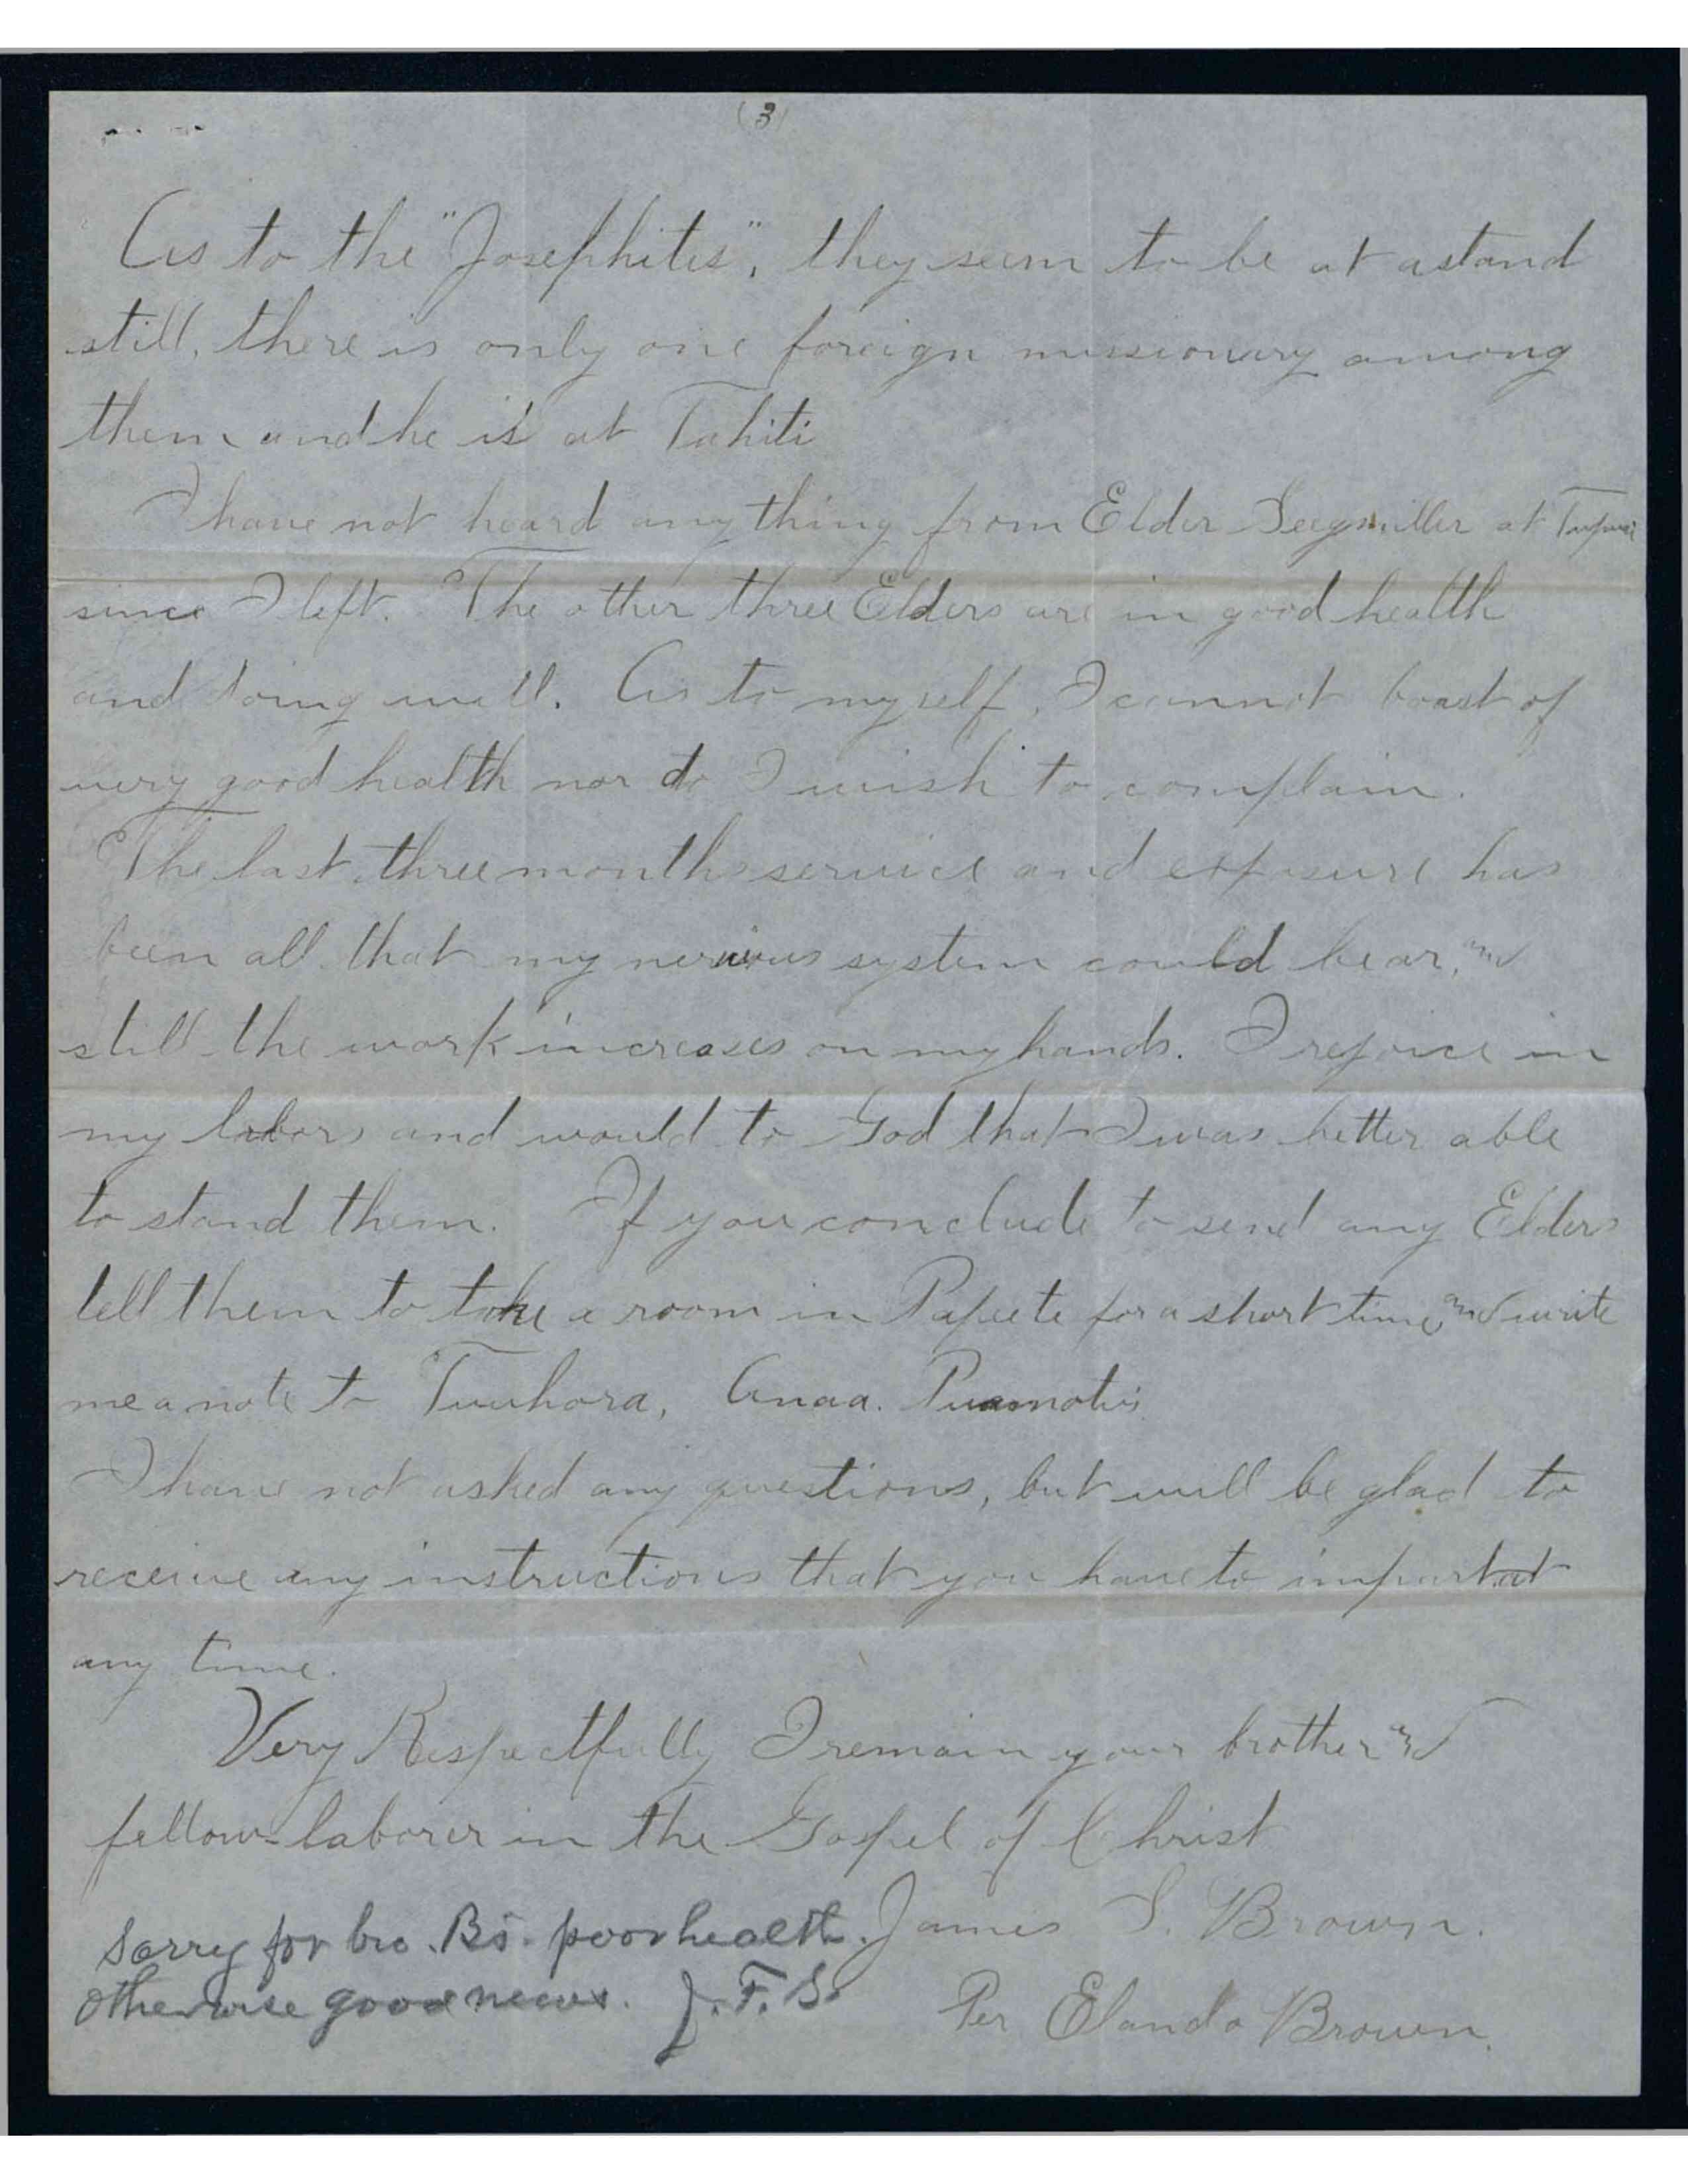 (3)
As to the "Josephites", they seem to be at a stand
still, there is only one foreign missionary among
them and he is at Tahiti
I have not heard any thing from Elder Seegmiller at
since I left. The other three Elders are in good health
and doing well. As to myself, I cannot boast of
very good health nor do I wish to complain.
The last three months service and exposure has
been all that my nervious system could bear, and
still the work increases on my hands. I rejoice in
my labors and would to God that I was better able
to stand them. If you conclude to send any Elders
tell them to take a room in Papeete for a short time, and write
me a note to Tuuhora, Anaa. Puamotus
I have not asked any questions, but will be glad to
receive any instructions that you have to impart at
any time.
Very Respectfully I remain your brother and
fellow-laborer in the Gospel of Christ
James S. Brown.
Per Elando Brown.
Sorry for bro. B's. poor health.
Otherwise good news. J. F. S.